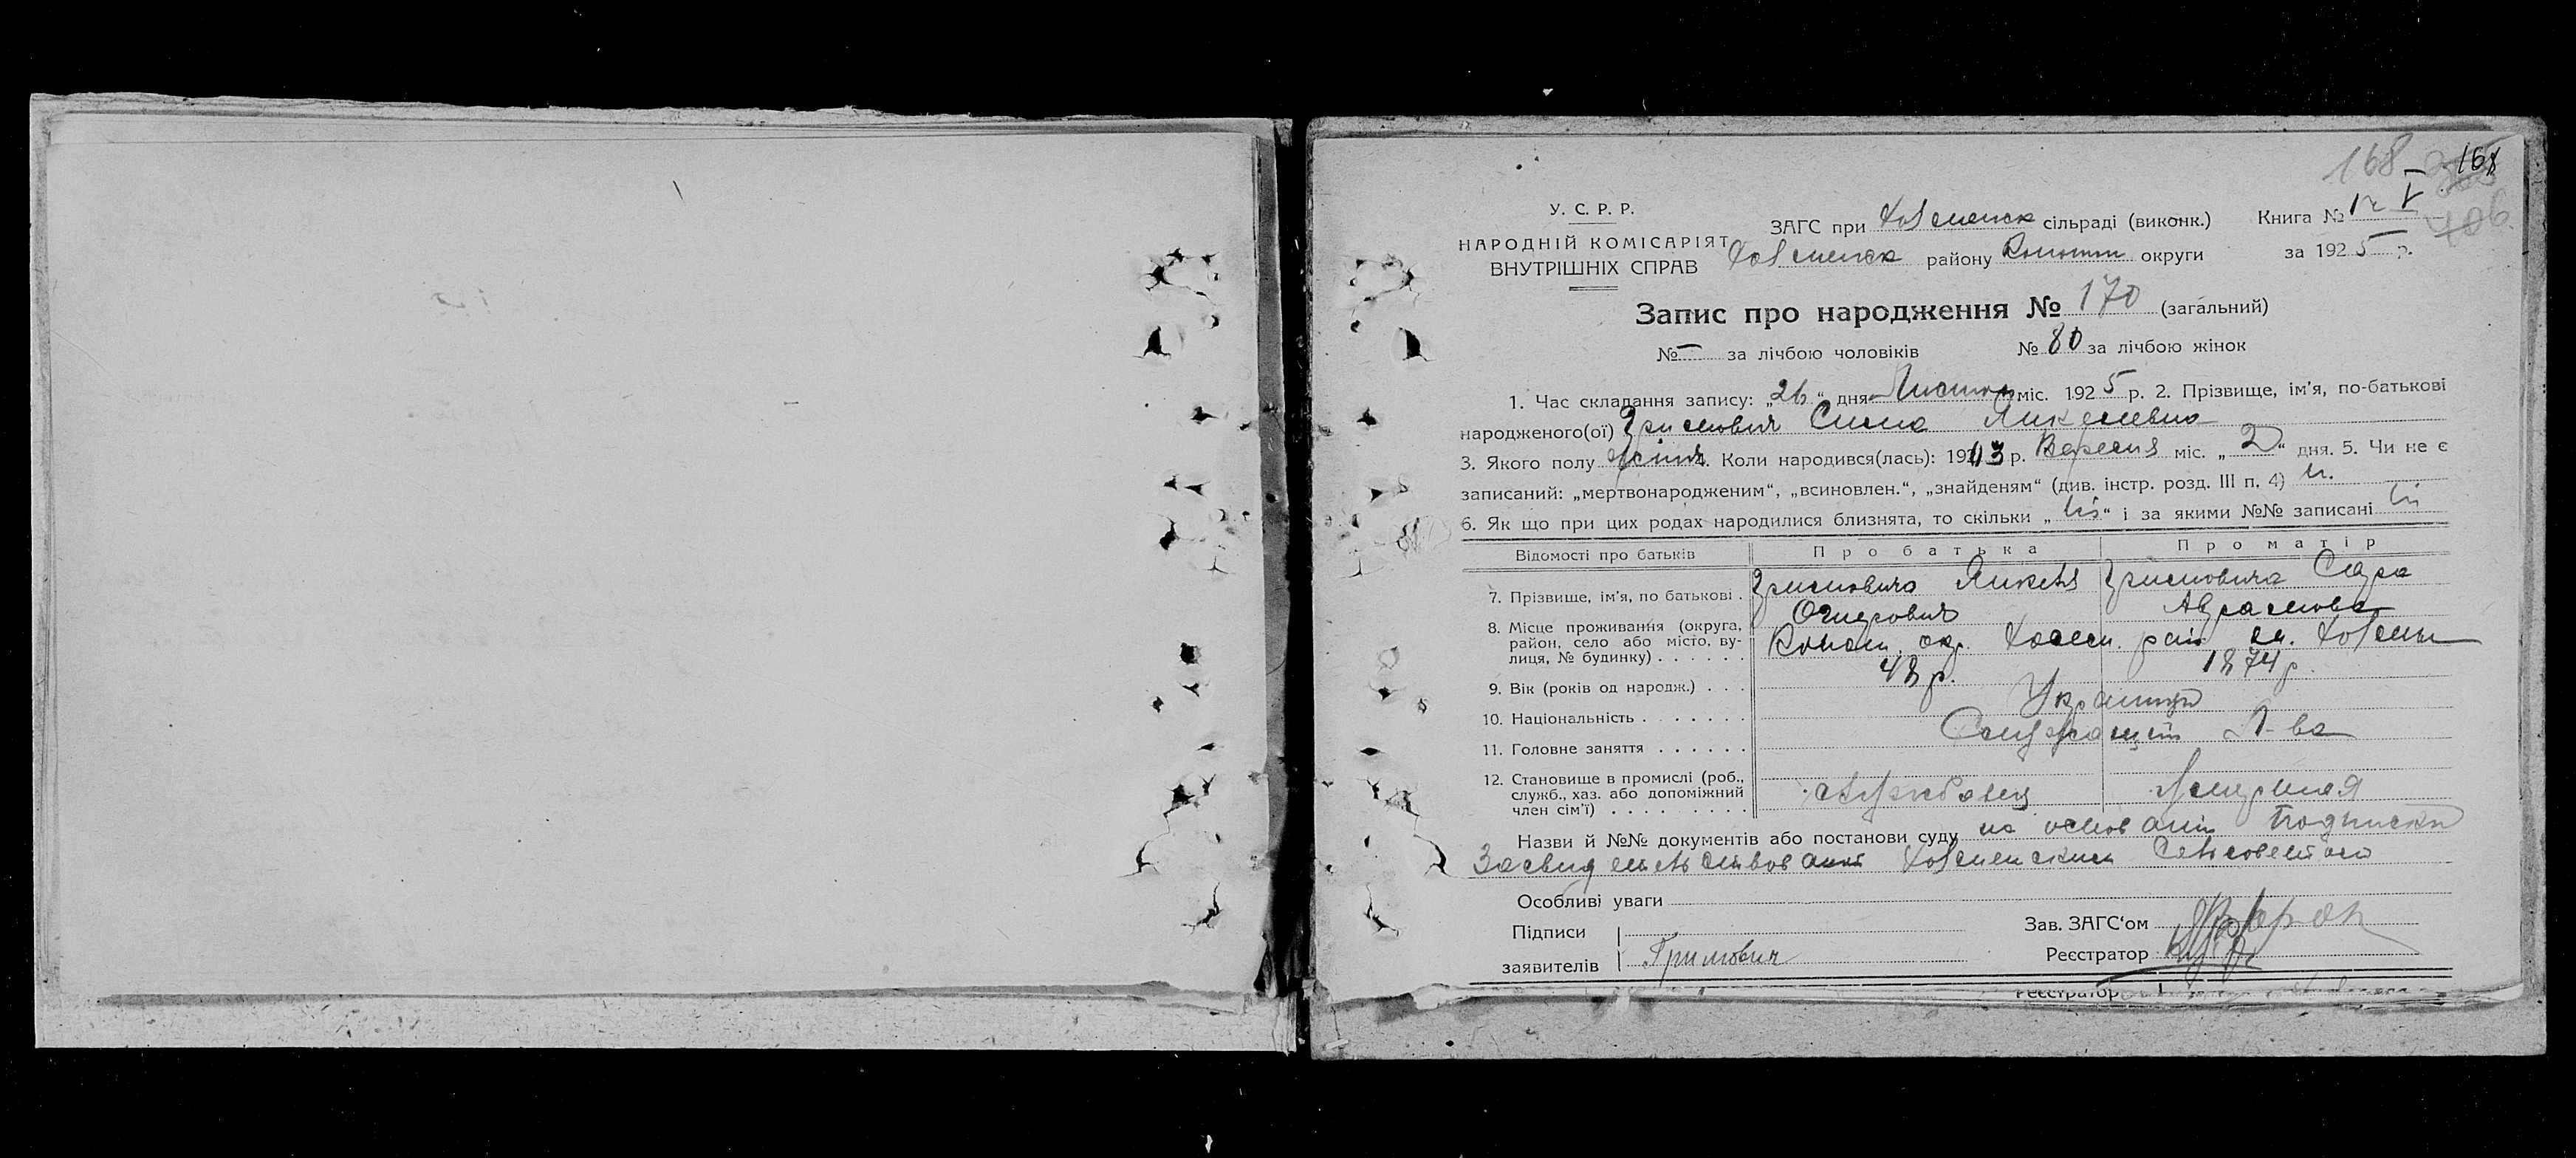 168 168
У. С. Р. Р.
НАРОДНІЙ КОМІСАРІЯТ
ВНУТРІШНІХ СПРАВ
ЗАГС приХовменск сільраді (виконк.) Книга №
Ховменск району Конотт округи за 1925 р.
Запис про народження № 170 (загальний)
№ – за лічбою чоловіків № 80 за лічбою жінок
1. Час складання запису: „26“ дня міс. 1925 р. 2. Прізвище, ім'я, по-батькові
народженого(ої) Грилнович Сима Янкелевна
3. Якого полу жіноч. Коли народився(лась): 1913 р. Вересня міс. „2“ дня. 5. Чи не є
записаний: „мертвонародженим“, „всиновлен.“, „знайденям“ (див. інстр. розд. III п. 4) н.
6. Як що при цих родах народилися близнята, то скільки „ні“ і за якими №№ записані ні
Відомості про батьків Про батька Про матір
7. Прізвище, ім'я, по батькові . Янкель Сара
Аврамова
8. Місце проживання (округа,
район, село або місто, ву-
лиця, № будинку) . . . . . . Коноп. окр. Ховм. рай. м. Ховмы
9. Вік (років од народж.) . . . 48 р. 1874 р.
10. Національність . . . . . . . Украинци
11. Головне заняття . . . . . .
12. Становище в промислі (роб.,
служб., хаз. або допоміжний
член сім'ї) . . . . . . . . .
Назви й №№ документів або постанови суду на основании Подписки
Засвидетельствованной Ховменским Сельсоветом
Особливі уваги
Підписи Зав. ЗАГС'ом
заявителів Гримович Реєстратор
Реєстратор